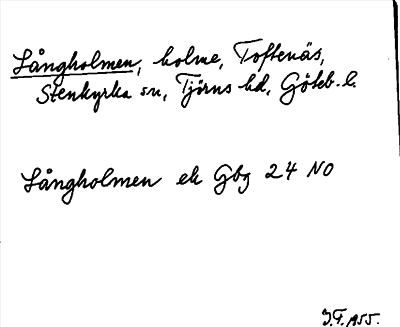 Långholmen, holme, Toftenäs,
Stenkyrka sn, Tjörns hd, Göteb. l.
Långholmen ek Gbg 24 NO
J.F. 1955.